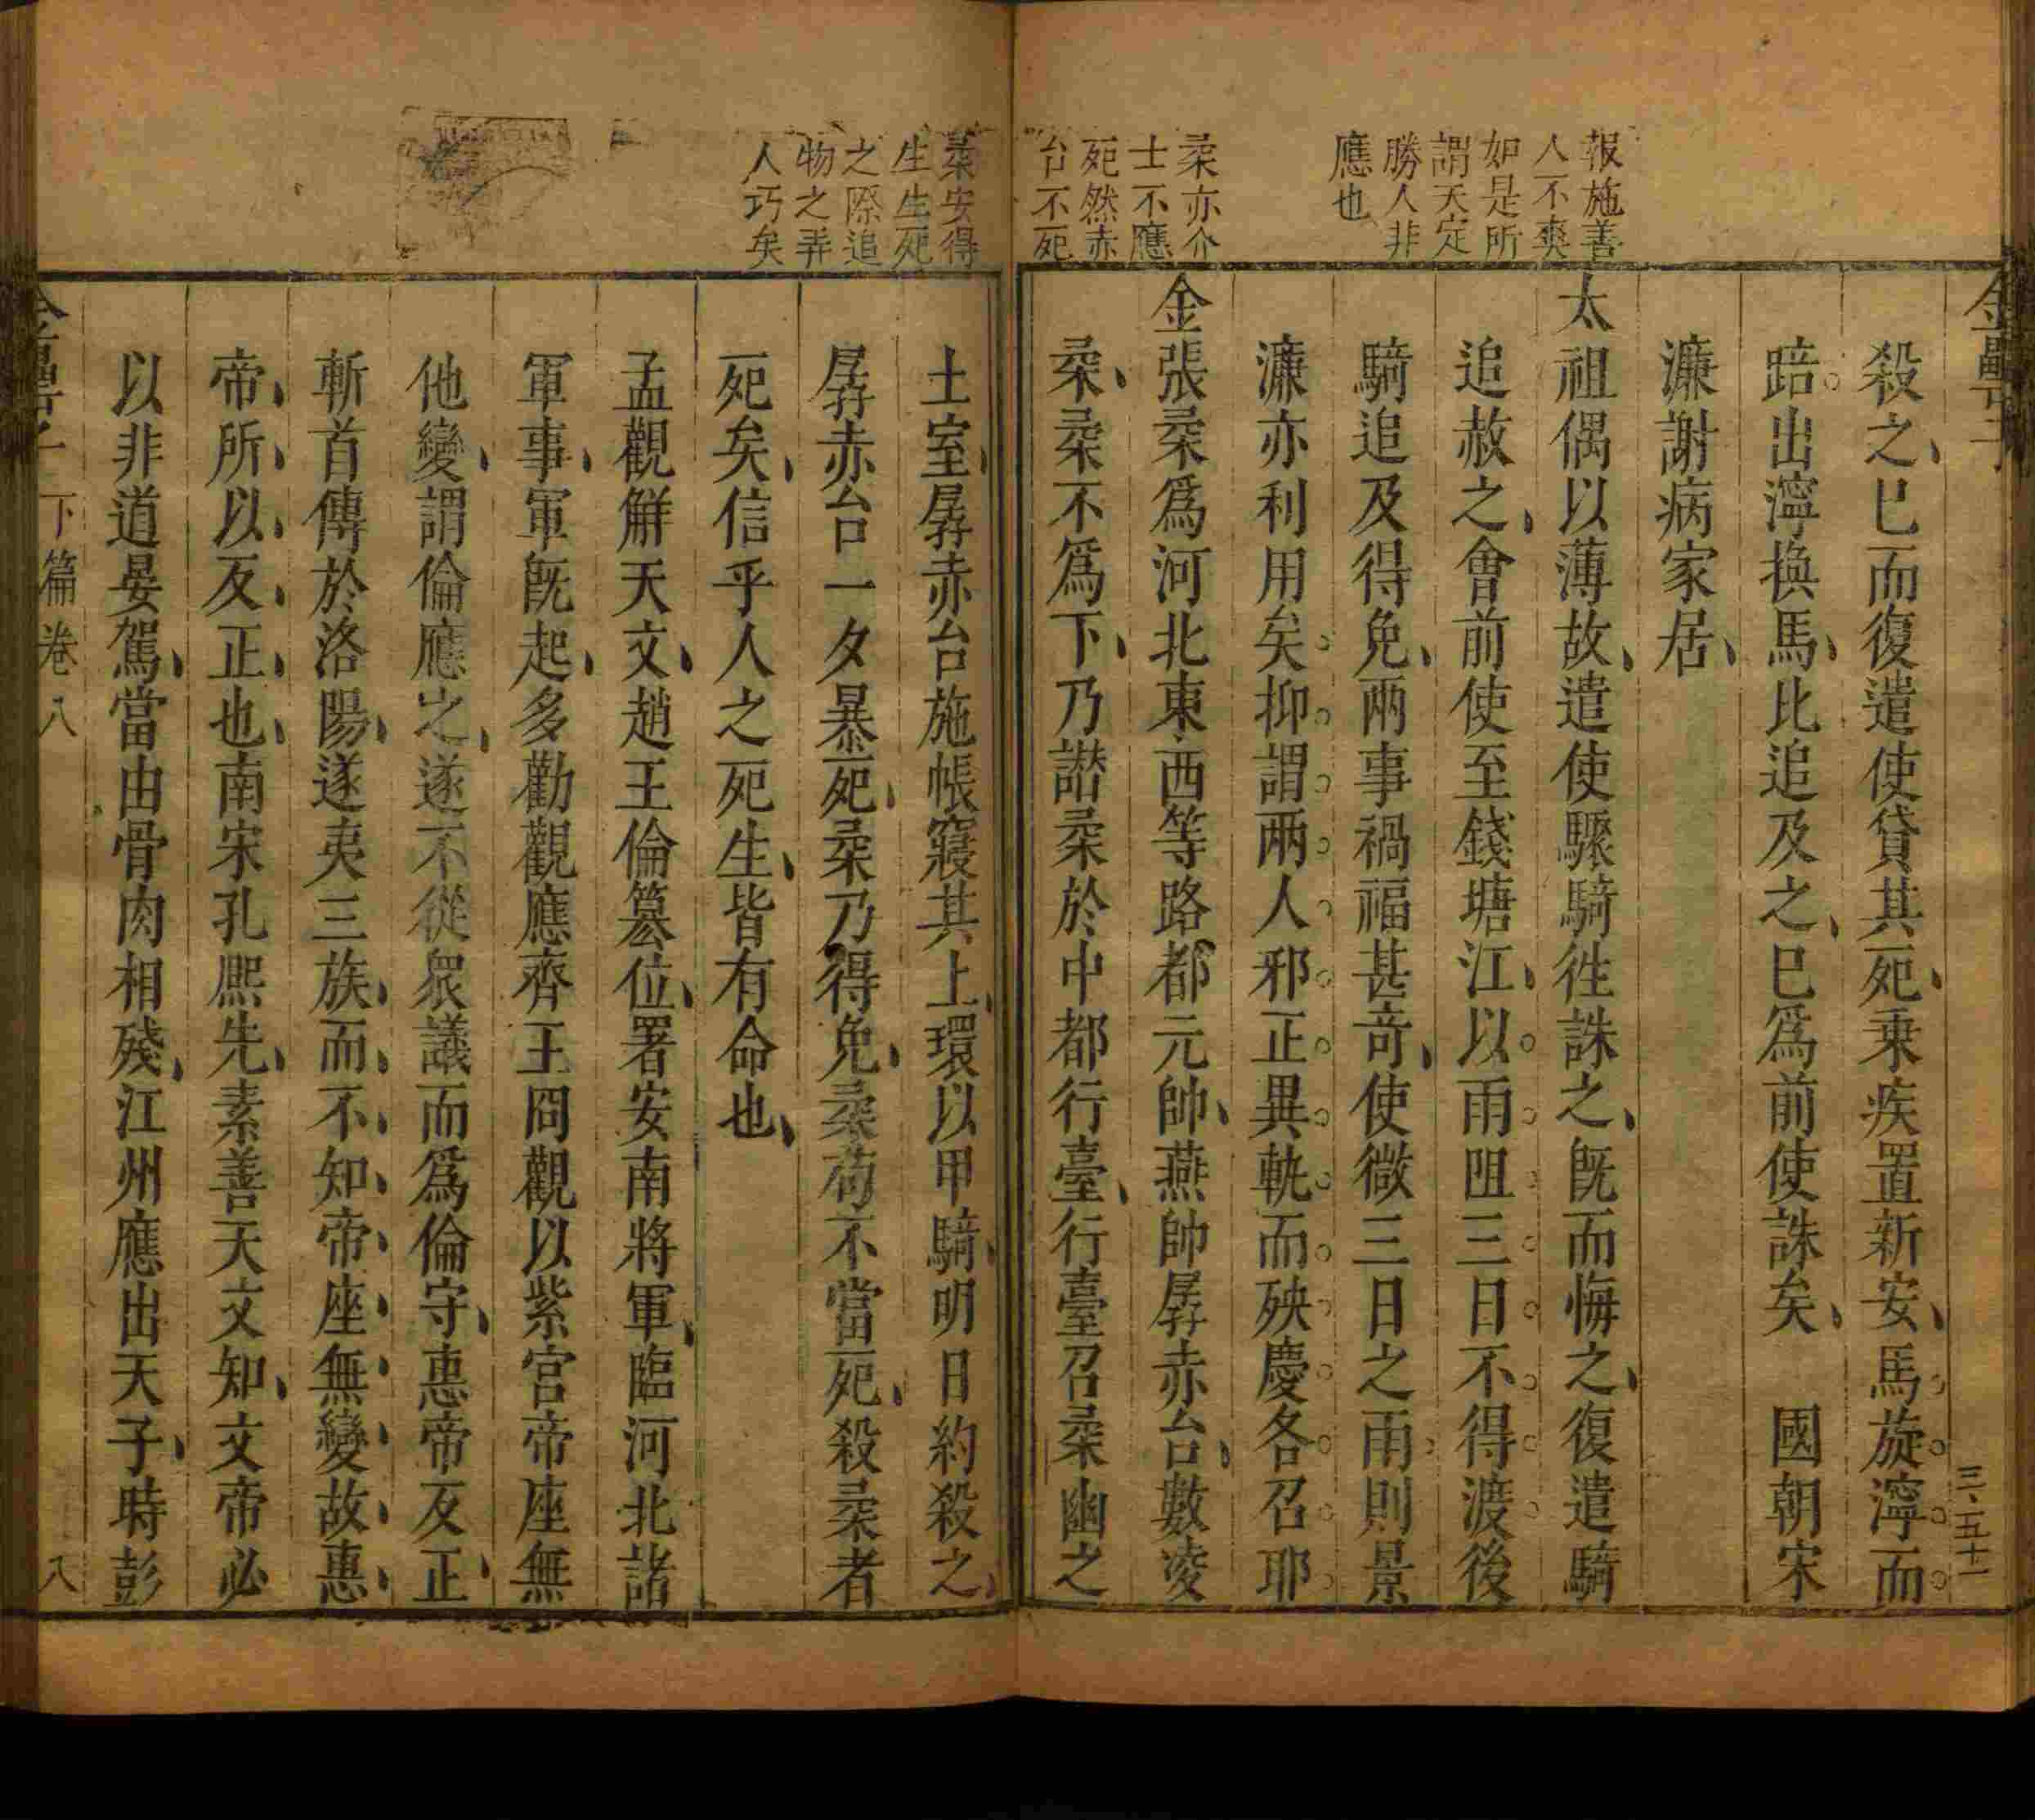 報施善
人不爽
如是所
謂天定
勝人非
應也
柔亦介
士不應
死然赤
台不死
金罍子
三、五十一
殺之已而復遣使貸其死乗疾置新安馬旋濘而
踣出濘換馬比追及之已爲前使誅矣　國朝宋
濂謝病家居
太祖偶以薄故遣使驟騎徃誅之旣而悔之復遣騎
追赦之會前使至錢塘江以雨阻三日不得渡後
騎追及得免兩事禍福甚竒使微三日之雨則景
濂亦利用矣抑謂兩人邪正異軌而殃慶各召耶
金張柔爲河北東西等路都元帥燕帥孱赤台數凌
柔柔不爲下乃譖柔於中都行臺行臺召柔幽之
柔安得
生生死
之際造
物之弄
人巧矣
土室孱赤台施帳寢其上環以甲騎明日約殺之
孱赤台一夕暴死柔乃得免柔苟不當死殺柔者
死矣信乎人之死生皆有命也
孟觀觧天文趙王倫簒位署安南將軍臨河北諸
軍事軍旣起多勸觀應齊王冏觀以紫宮帝座無
他變謂倫應之遂不從衆議而爲倫守惠帝反正
斬首傳於洛陽遂夷三族而不知帝座無變故惠
帝所以反正也南宋孔熈先素善天文知文帝必
以非道晏駕當由骨肉相殘江州應出天子時彭
金罍子　下篇卷八　八